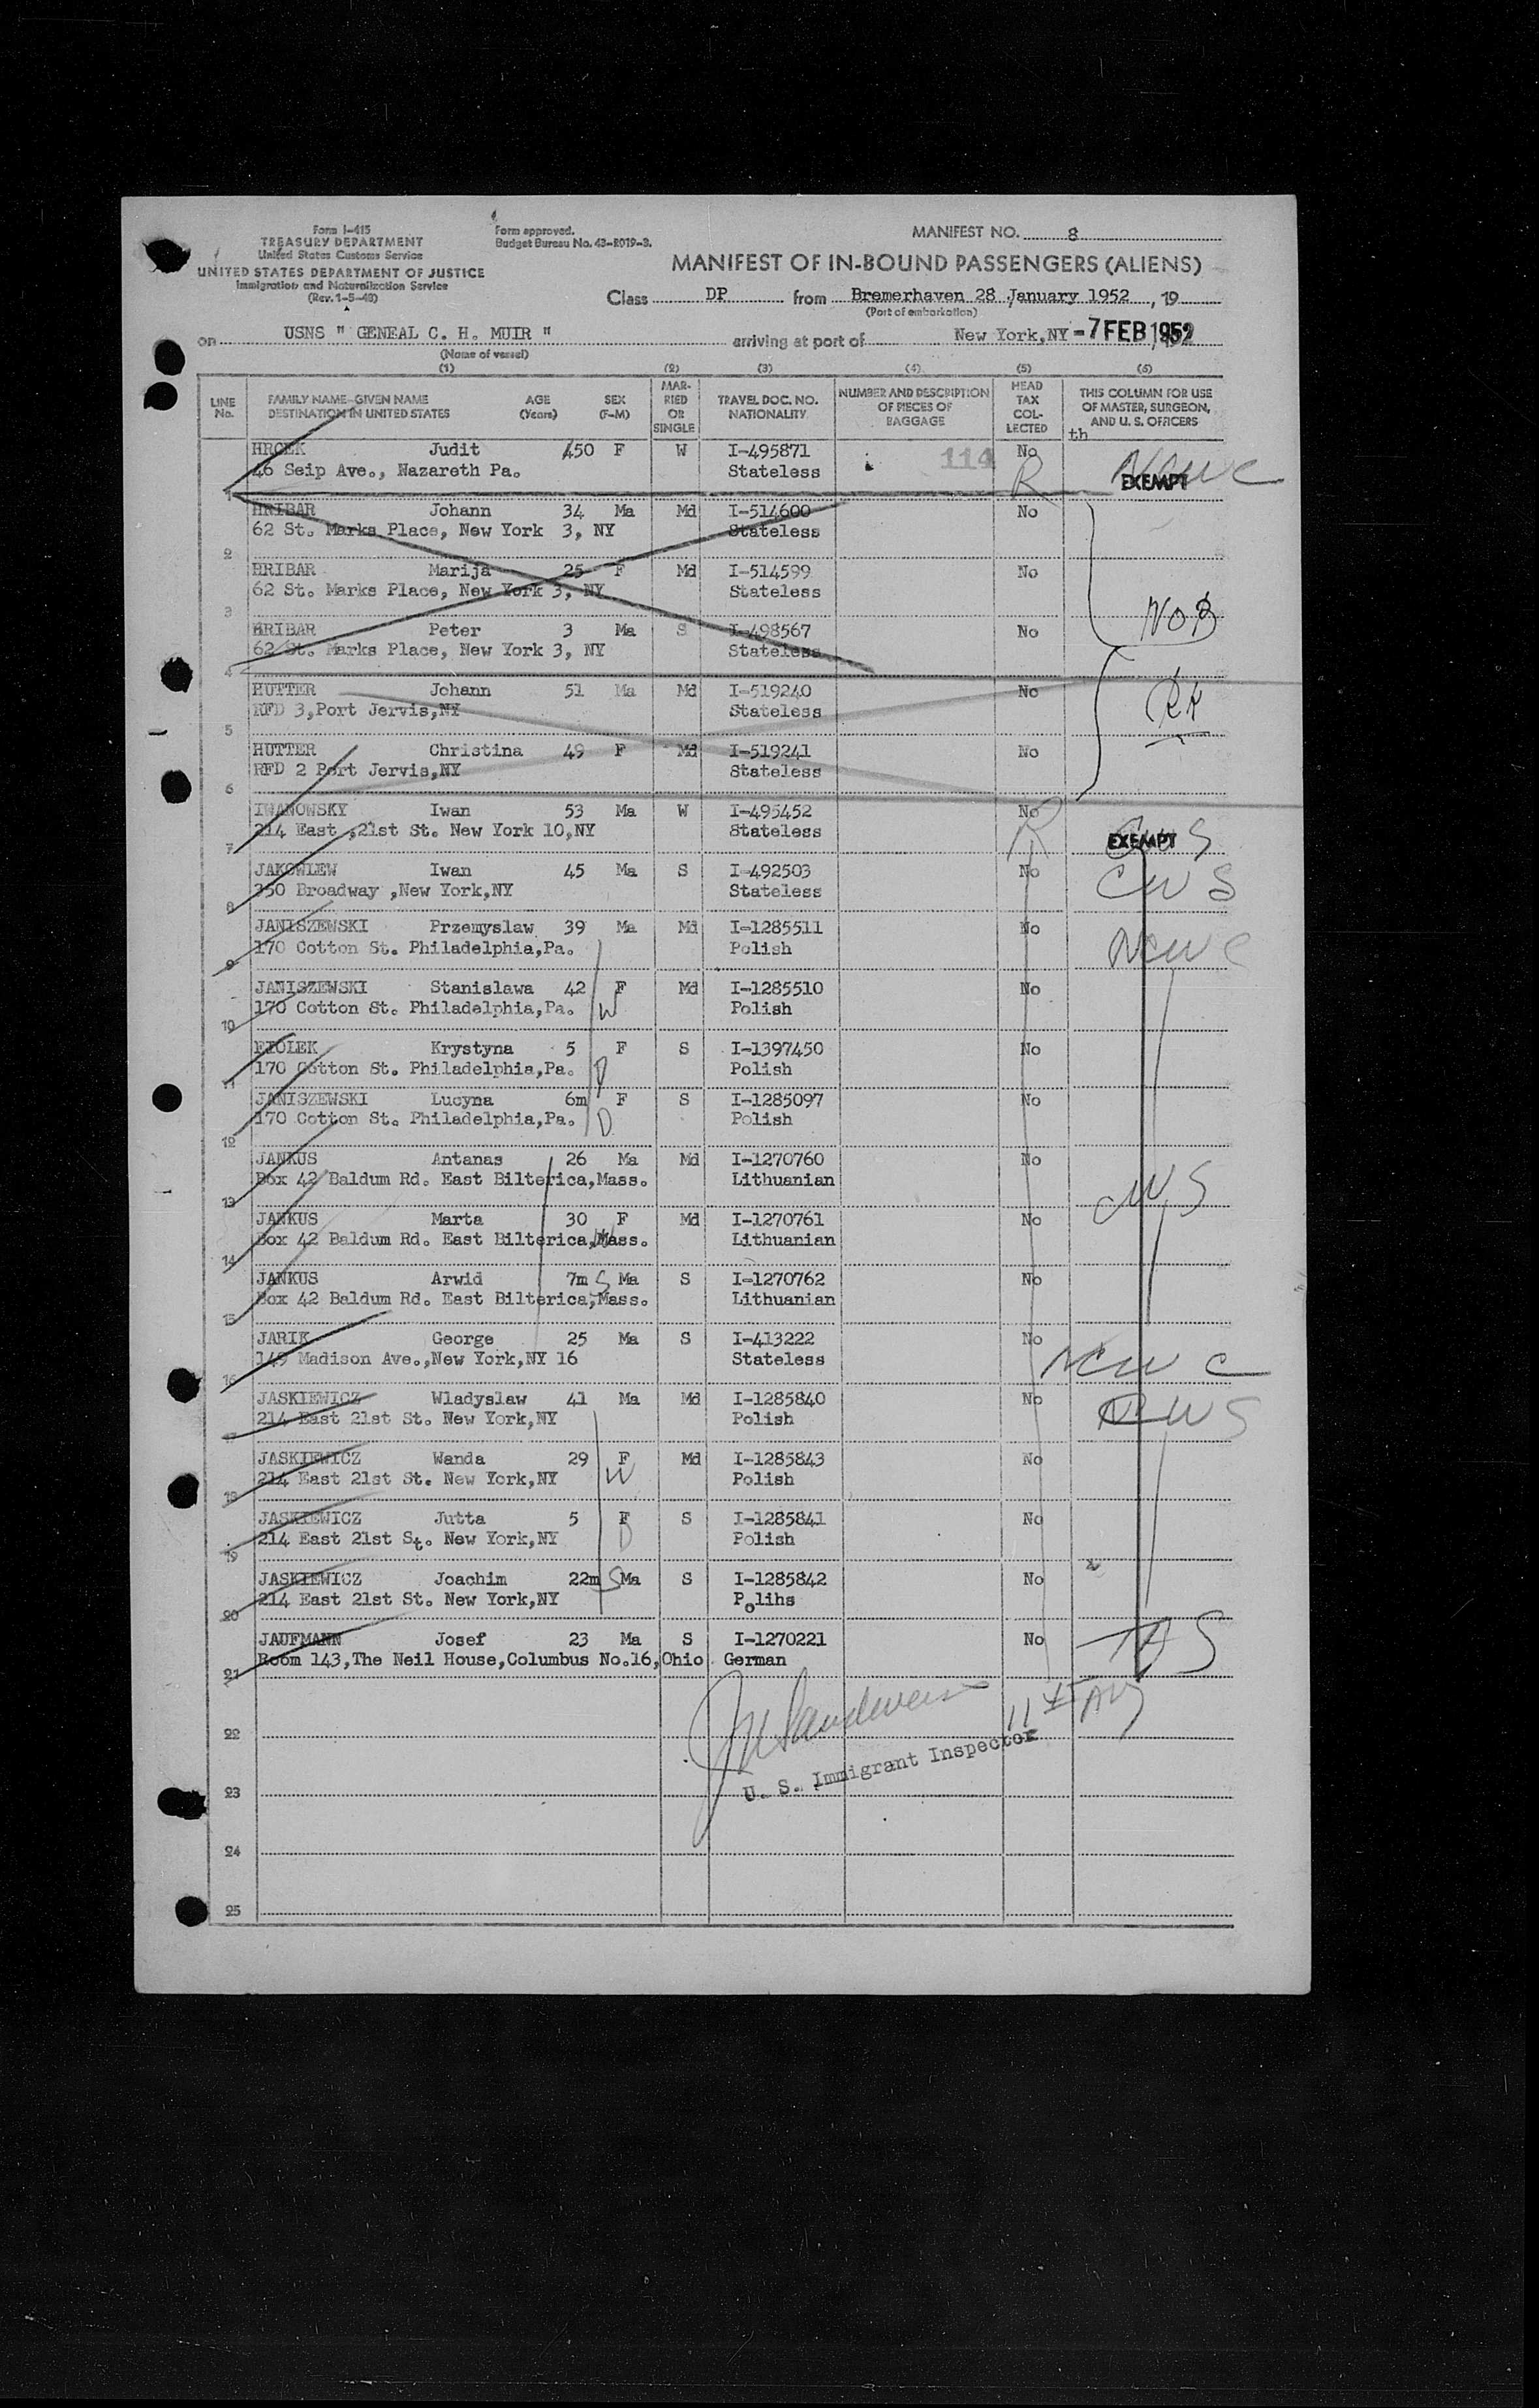 Form I-415
TREASURY DEPARTMENT
United States Customs Service
UNITED STATES DEPARTMENT OF JUSTICE
Immigration and Naturalization Service
(Rev. 1-5-48)
Form approved.
Budget Bureau No. 43-R019-3.
MANIFEST NO. 8
MANIFEST OF IN-BOUND PASSENGERS (ALIENS)
Class DP from Bremerhaven 28 January 1952, 19
(Port of embarkation)
on USNS " GENEAL C. H. MUIR " arriving at port of New York,NY -7 FEB 1952
(Name of vessel)
(1) (2) (3) (4) (5) (6)
LINE No. FAMILY NAME—GIVEN NAME DESTINATION IN UNITED STATES AGE (Years) SEX (F-M) MARRIED OR SINGLE TRAVEL DOC. NO. NATIONALITY NUMBER AND DESCRIPTION OF PIECES OF BAGGAGE HEAD TAX COLLECTED THIS COLUMN FOR USE OF MASTER, SURGEON, AND U. S. OFFICERS
th
HRCEK Judit 50 F W I-495871 114 No NCWC
46 Seip Ave., Nazareth Pa. Stateless R EXEMPT
1
HRIBAR Johann 34 Ma Md I-514600 No
62 St. Marks Place, New York 3, NY Stateless
2
HRIBAR Marija 25 F Md I-514599 No
62 St. Marks Place, New York 3, NY Stateless
3 NOB
HRIBAR Peter 3 Ma S I-498567 No
62 St. Marks Place, New York 3, NY Stateless
4
HUTTER Johann 51 Ma Md I-519240 No
RFD 3,Port Jervis,NY Stateless
5
HUTTER Christina 49 F Md I-519241 No
RFD 2 Port Jervis,NY Stateless
6
IWANOWSKY Iwan 53 Ma W I-495452 No
214 East ,21st St. New York 10,NY Stateless R EXEMPT CWS
7
JAKOWLEW Iwan 45 Ma S I-492503 No CWS
350 Broadway ,New York,NY Stateless
8
JANISZEWSKI Przemyslaw 39 Ma Md I-1285511 No NCWC
170 Cotton St. Philadelphia,Pa. Polish
9
JANISZEWSKI Stanislawa 42 F Md I-1285510 No
170 Cotton St. Philadelphia,Pa. W Polish
10
FIOLEK Krystyna 5 F S I-1397450 No
170 Cotton St. Philadelphia,Pa. D Polish
11
JANISZEWSKI Lucyna 6m F S I-1285097 No
170 Cotton St. Philadelphia,Pa. D Polish
12
JANKUS Antanas 26 Ma Md I-1270760 No
Box 42 Baldum Rd. East Bilterica,Mass. Lithuanian CWS
13
JANKUS Marta 30 F Md I-1270761 No
Box 42 Baldum Rd. East Bilterica,Mass. W Lithuanian
14
JANKUS Arwid 7m S Ma S I-1270762 No
Box 42 Baldum Rd. East Bilterica,Mass. Lithuanian
15
JARIK George 25 Ma S I-413222 No
149 Madison Ave.,New York,NY 16 Stateless NCWC
16
JASKIEWICZ Wladyslaw 41 Ma Md I-1285840 No CWS
214 East 21st St. New York,NY Polish
17
JASKIEWICZ Wanda 29 F Md I-1285843 No
214 East 21st St. New York,NY W Polish
18
JASKIEWICZ Jutta 5 F S I-1285841 No
214 East 21st St. New York,NY D Polish
19
JASKIEWICZ Joachim 22m S Ma S I-1285842 No
214 East 21st St. New York,NY Polihs
20
JAUFMANN Josef 23 Ma S I-1270221 No
Room 143,The Neil House,Columbus No.16,Ohio German
21
22
U. S. Immigrant Inspector
23
24
25